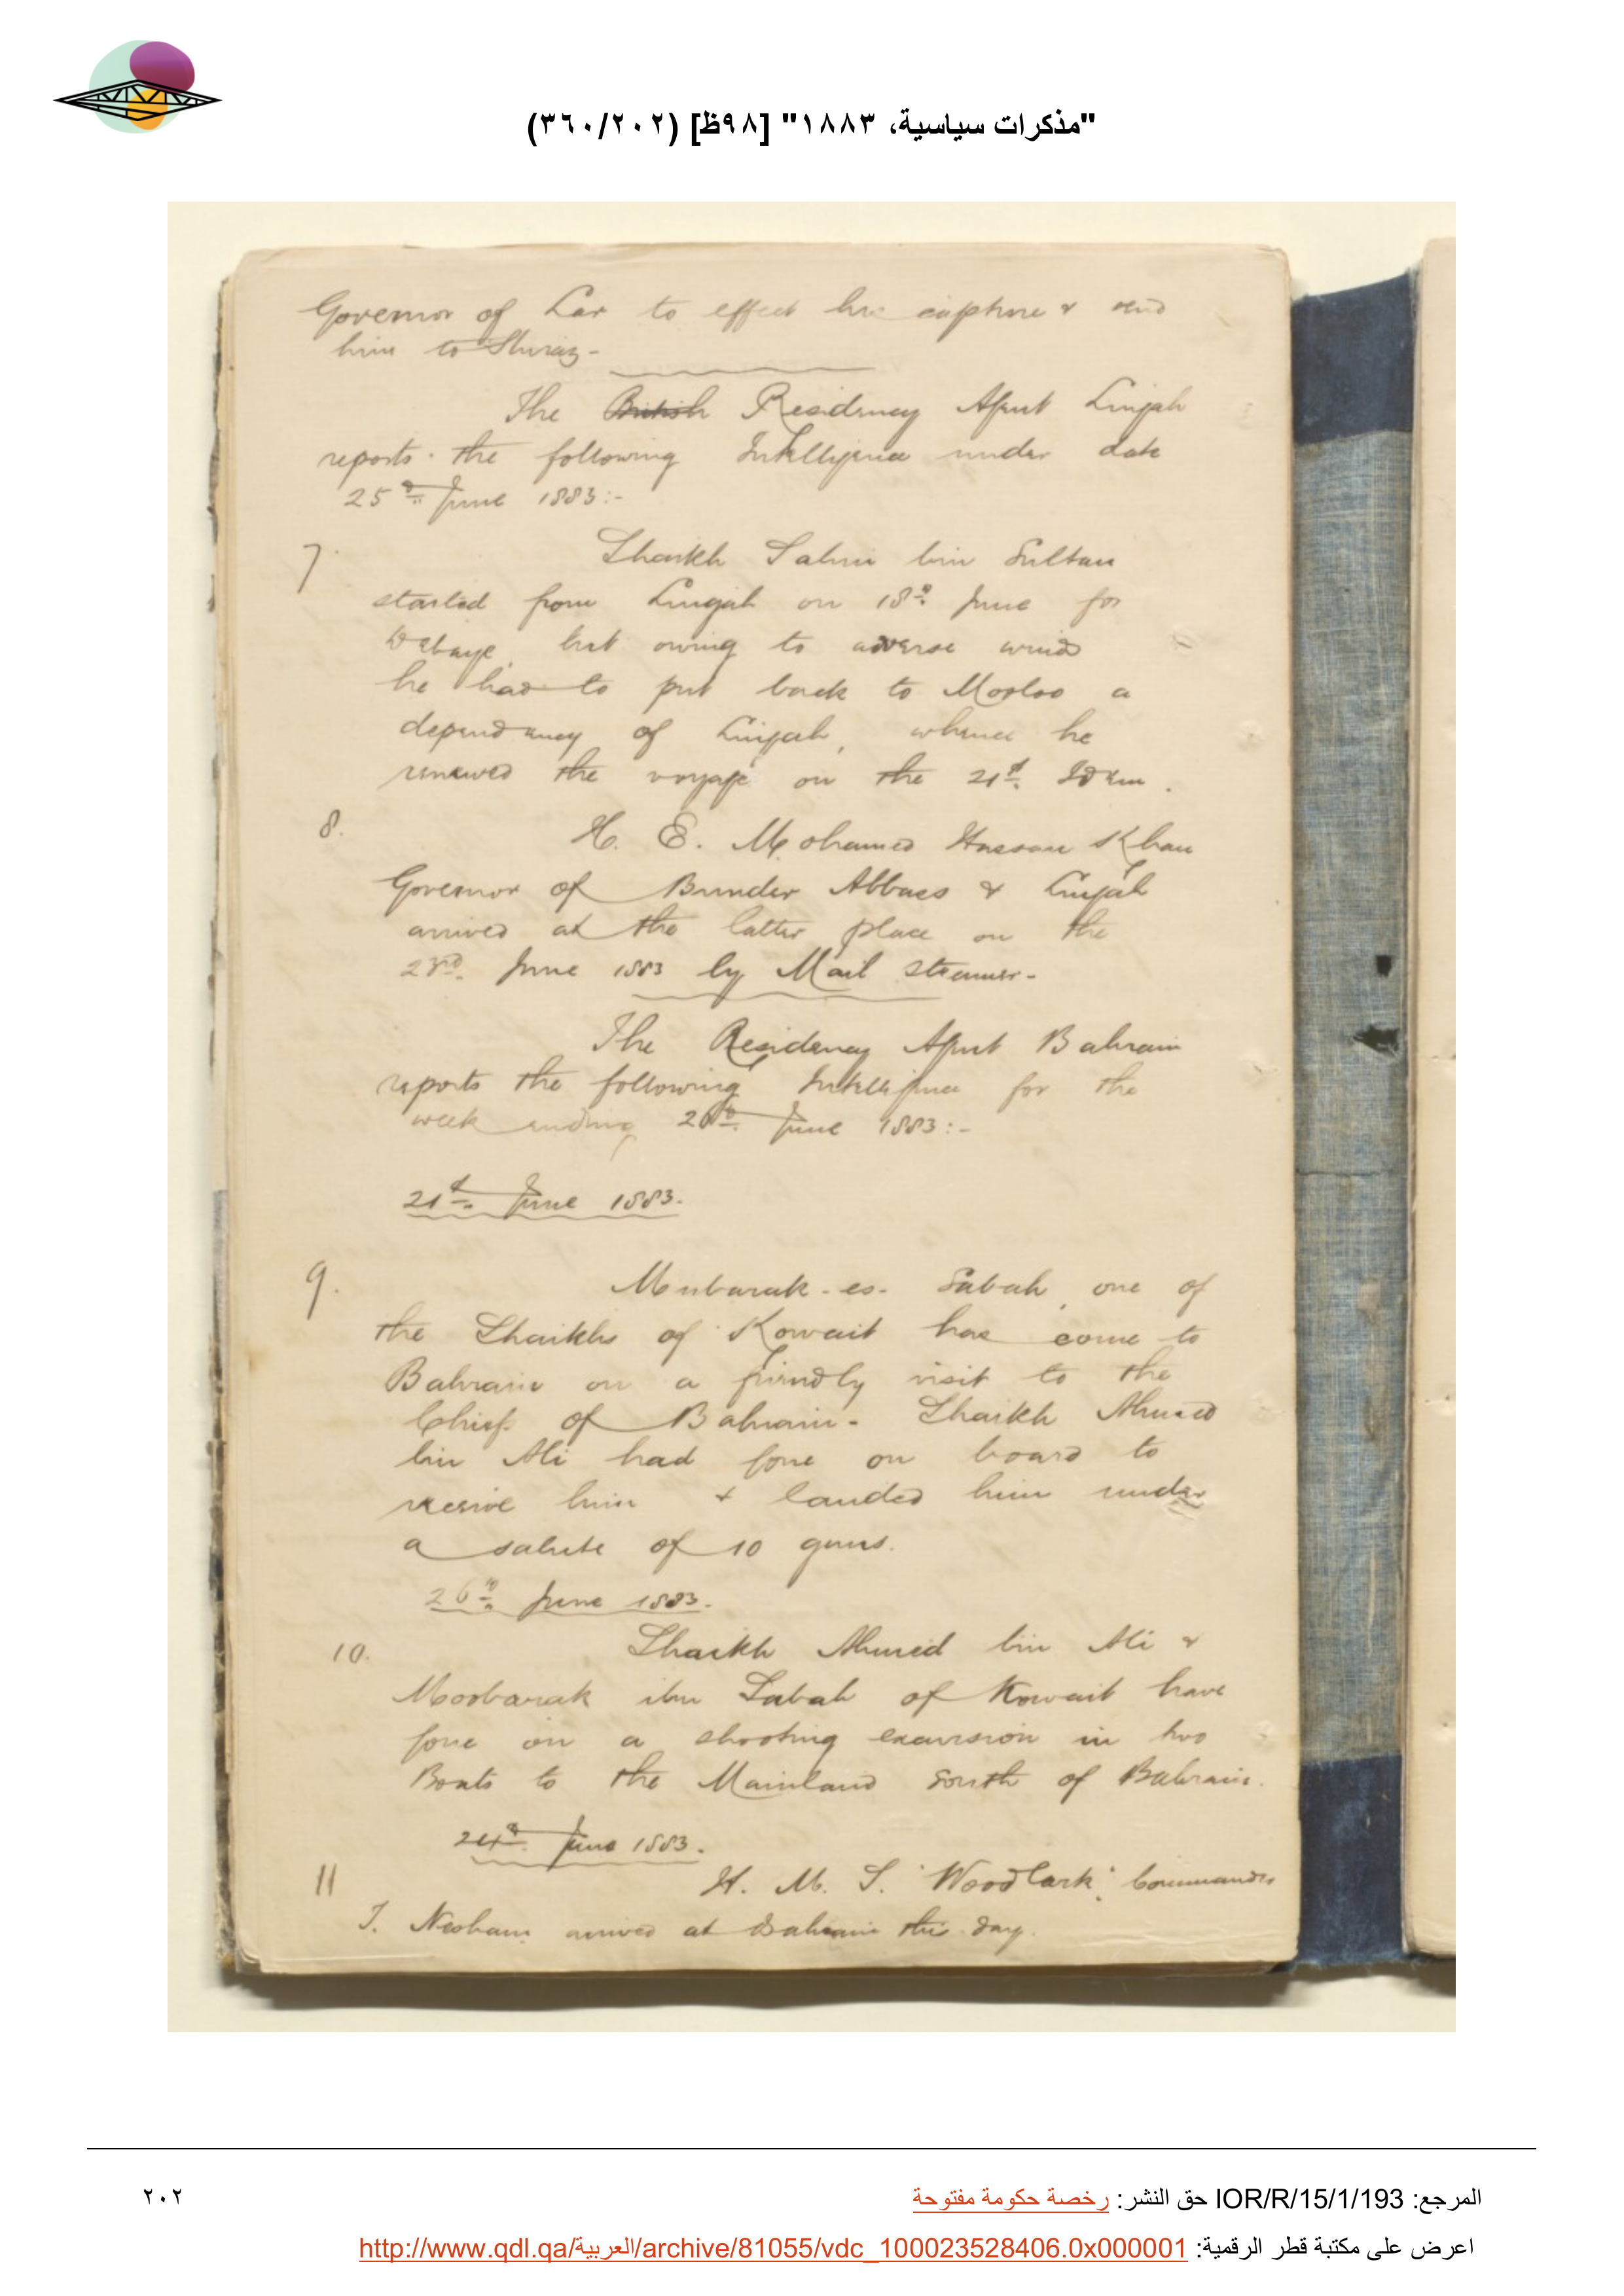 "مذكرات سياسية، ١٨٨٣" [٩٨ظ] (٣٦٠/٢٠٢)
Governor of Lar to effect his capture & send
him to Shiraz -
The British Residency Agent Lingah
reports the following Intelligence under date
25th June 1883:-
7. Shaikh Salim bin Sultan
started from Lingah on 18th June for
Debaye, but owing to adverse winds
he had to put back to Mogloo a
dependancy of Lingah, whence he
renewed the voyage on the 21st Idem.
8. H. E. Mohamed Hassan Khan
Governor of Bunder Abbass & Lingah
arrived at the latter place on the
23rd. June 1883 by Mail steamer-
The Residency Agent Bahrain
reports the following Intelligence for the
week ending 26th June 1883:-
21st June 1883.
9. Mubarak-es-Sabah, one of
the Shaikhs of Kowait has come to
Bahrain on a friendly visit to the
Chief of Bahrain- Shaikh Ahmed
bin Ali had gone on board to
receive him & landed him under
a salute of 10 guns.
26th June 1883.
10. Shaikh Ahmed bin Ali &
Moobarak ibn Sabah of Kowait have
gone on a shooting excursion in two
Boats to the Mainland South of Bahrain.
24th June 1883.
11 H. M. S. "Woodlark", Commander
T. Nesham arrived at Bahrain this day.
المرجع: IOR/R/15/1/193 حق النشر: رخصة حكومة مفتوحة
٢٠٢
اعرض على مكتبة قطر الرقمية: http://www.qdl.qa/العربية/archive/81055/vdc_100023528406.0x000001